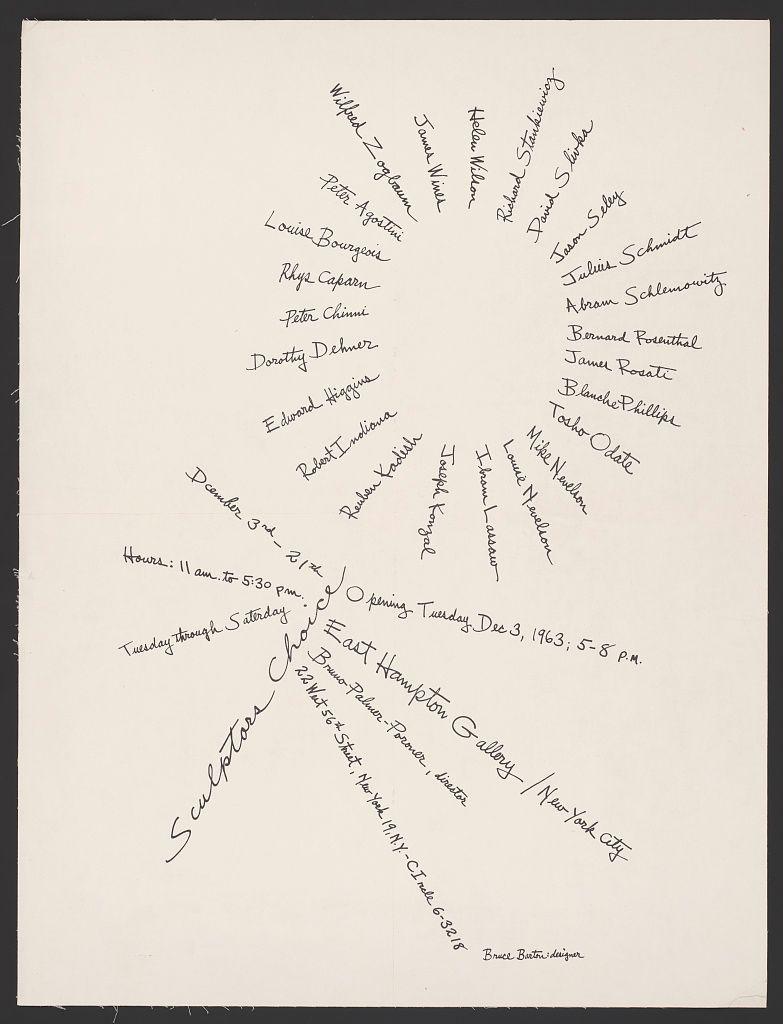 Wilfred Zogbaum
James Wines
Helen Wilson
Richard Stankiewicz
David Slivka
Jason Seley
Julius Schmidt
Abram Schlemowitz
Bernard Rosenthal
James Rosati
Blanche Phillips
Tosho Odate
Mike Nevelson
Louise Nevelson
Ibram Lassaw
Joseph Konzal
Reuben Kadish
Robert Indiana
Edward Higgins
Dorothy Dehner
Peter Chinni
Rhys Caparn
Louise Bourgeois
Peter Agostini
Dcember 3rd - 21th
Hours: 11 am. to 5:30 pm.
Tuesday through Saterday
Sculptors Choice
Opening Tuesday Dec 3, 1963; 5-8 P.M.
East Hampton Gallery / New York City
Bruno Palmer-Poroner, director
22 West 56th Street, New York 19, N.Y. - CIrcle 6-3218
Bruce Barton: designer